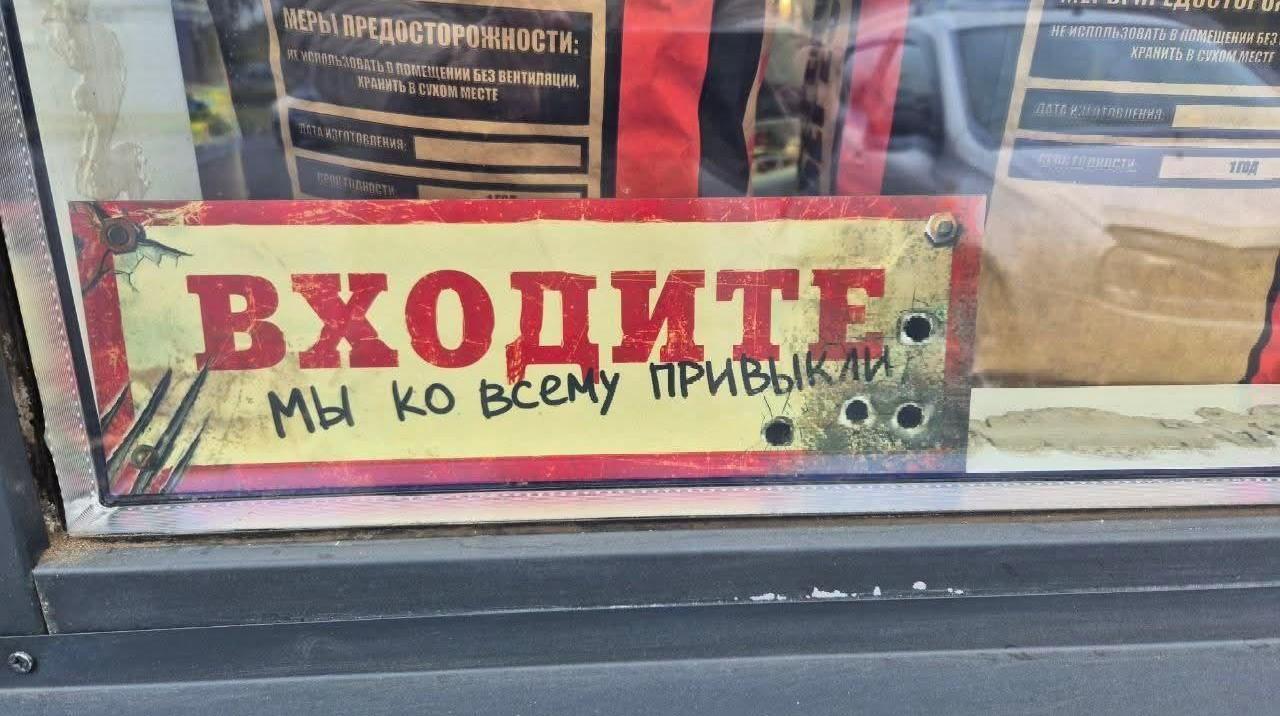 МЕРЫ ПРЕДОСТОРОЖНОСТИ:
НЕ ИСПОЛЬЗОВАТЬ В ПОМЕЩЕНИИ БЕЗ ВЕНТИЛЯЦИИ,
ХРАНИТЬ В СУХОМ МЕСТЕ
ДАТА ИЗГОТОВЛЕНИЯ:
СРОК ГОДНОСТИ
1 ГОД
НЕ ИСПОЛЬЗОВАТЬ В ПОМЕЩЕНИИ БЕЗ
ХРАНИТЬ В СУХОМ МЕСТЕ
ДАТА ИЗГОТОВЛЕНИЯ:
СРОК ГОДНОСТИ
1 ГОД
ВХОДИТЕ
МЫ КО ВСЕМУ ПРИВЫКЛИ